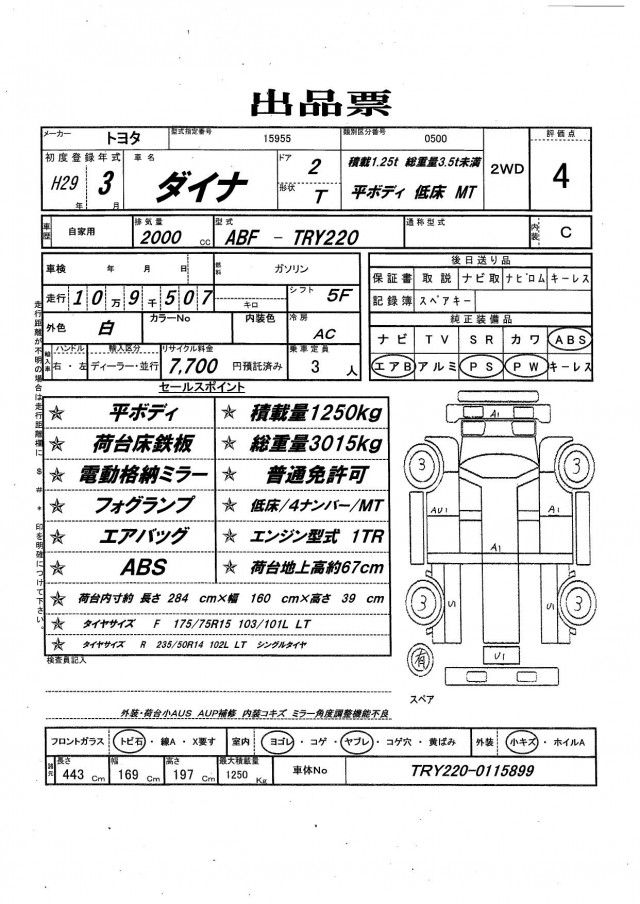 出品票
メーカー トヨタ 型式指定番号 15955 類別区分番号 0500 2WD 評価点
初度登録年式 車名 ドア 2 積載1.25t 総重量3.5t未満 4
H29年 3月 ダイナ 形状 T 平ボディ 低床 MT
車歴 自家用 排気量 2000 cc 型式 ABF - TRY220 通称型式 内装 C
車検 年 月 日 燃料 ガソリン 後日送り品
走行 10万9千507 キロ シフト 5F 保証書 取説 ナビ取 ナビロム キーレス
記録簿 スペアキー
外色 白 カラーNo 内装色 冷房 AC 純正装備品
ナビ TV SR カワ ABS
輸入車 ハンドル 右・左 輸入区分 ディーラー・並行 リサイクル料金 7,700 円預託済み 乗車定員 3 人 エアB アルミ PS PW キーレス
走行距離が不明の場合は走行距離欄に $ # * 印を明確につけて下さい。
セールスポイント
平ボディ 積載量1250kg
荷台床鉄板 総重量3015kg
電動格納ミラー 普通免許可
フォグランプ 低床/4ナンバー/MT
エアバッグ エンジン型式 1TR
ABS 荷台地上高約67cm
荷台内寸約 長さ 284 cm×幅 160 cm×高さ 39 cm
タイヤサイズ F 175/75R15 103/101L LT
タイヤサイズ R 235/50R14 102L LT シングルタイヤ
A1
3 3
AU1 A1 A1
3 3
S1 S1
有 U1
スペア
検査員記入
外装・荷台小AUS AUP補修 内装コキズ ミラー角度調整機能不良
フロントガラス トビ石・線A・X要す 室内 ヨゴレ・コゲ・ヤブレ・コゲ穴・黄ばみ 外装 小キズ・ホイルA
諸元 長さ 443 Cm 幅 169 Cm 高さ 197 Cm 最大積載量 1250 Kg 車体No TRY220-0115899